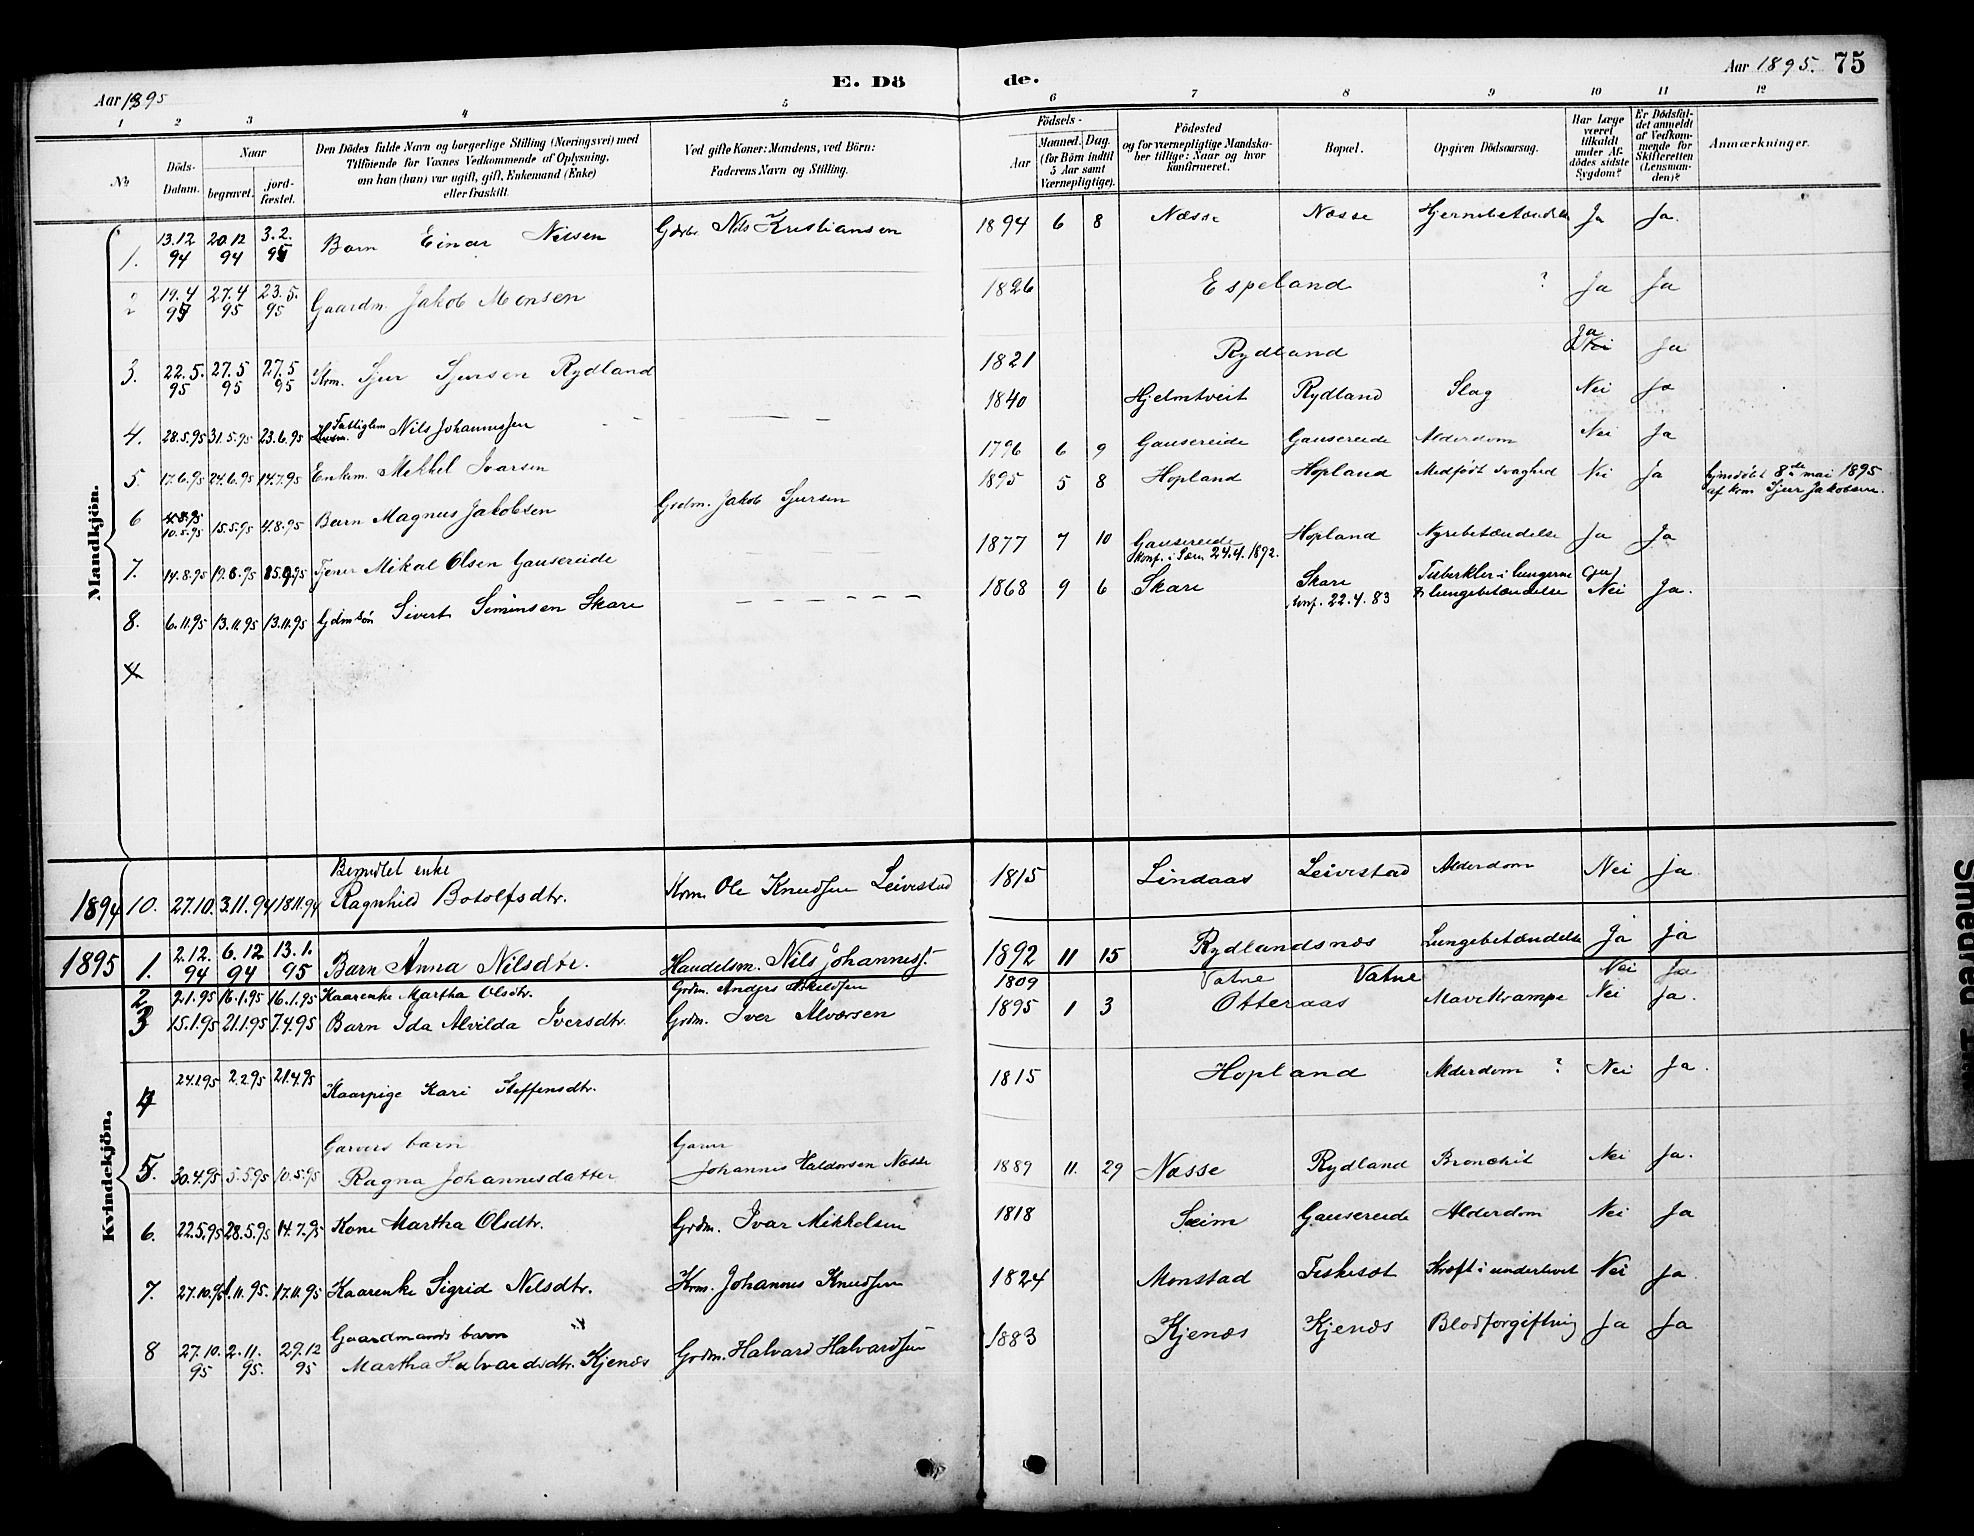 Aar 1895
E. Dö de.
Aar 1895. 75
1 2 3 4 5 6 7 8 9 10 11 12
№ Döds-Datum. Naar begravet. jord-fæstet. Den Dödes fulde Navn og borgerlige Stilling (Næringsvei) med Tilföiende for Voxnes Vedkommende af Oplysning, om han (hun) var ugift, gift, Enkemand (Enke) eller fraskilt. Ved gifte Koner: Mandens, ved Börn: Faderens Navn og Stilling. Födsels- Aar Maaned. Dag. (for Börn indtil 5 Aar samt Værnepligtige). Födested og for værnepligtige Mandskaber tillige: Naar og hvor konfirmeret. Bopæl. Opgiven Dödsaarsag. Har Læge været tilkaldt under Afdödes sidste Sygdom? Er Dödsfaldet anmeldt af Vedkommende for Skifteretten (Lensmanden)? Anmærkninger.
Mandkjön.
1. 13.12 94 20.12 94 3.2. 95 Barn Einar Nilsen Gdbr. Nils Kristiansen 1894 6 8 Næsse Næsse Hjernebetændelse Ja Ja.
2 19.4 95 27.4 95 23.5. 95 Gaardm. Jakob Monsen 1826 Espeland ? Ja Ja
3. 22.5. 95 27.5 95 27.5 95 Krm. Sjur Sjursen Rydland 1821 Rydland Ja Nei Ja
4. 28.5.95 31.5.95 23.6.95 Husm. Fattiglem Nils Johannessen 1840 Hjelmtveit Rydland Slag Nei Ja
5. 17.6.95 24.6.95 14.7.95 Enkem. Mikkel Ivarsen 1796 6 9 Gausereide Gausereide Alderdom Nei Ja
6 4.8.95 10.5.95 15.5.95 4.8.95 Barn Magnus Jakobsen Grdm. Jakob Sjursen 1895 5 8 Hopland Hopland Medfødt svaghed Nei Ja hjemdøbt 8de mai 1895 af krm Sjur Jakobsen.
7. 14.8.95 19.8.95 15.9.95 Tjener Mikal Olsen Gausereide 1877 7 10 Gausereide konf. i Sæm 24.4.1892. Hopland Nyrebetændelse Ja Ja
8. 6.11.95 13.11.95 13.11.95 Gdmsøn Sivert Simonsen Skare 1868 9 6 Skare Skare konf. 22.4.83 Tuberkler i lungerne lungebetændelse Nei Ja.
1894 10. 27.10. 3.11.94 18.11.94 Bemidlet enke Ragnhild Botolfsdtr. Krm. Ole Knudsen Leivestad 1815 Lindaas Leivestad Alderdom Nei Ja
1895 1. 2.12. 94 6.12 94 13.1. 95 Barn Anna Nilsdtr. Handelsm. Nils Johanness. 1892 11 15 Rydlandsnæs Lungebetændelse Ja Ja
Kvindekjön.
2 2.1.95 16.1.95 16.1.95 Kaarenke Martha Olsdtr. Grdm. Anders 1809 Vatne Vatne Nei Ja
3 15.1.95 21.1.95 7.4.95 Barn Ida Alvilda Iversdtr. Grdm. Iver Alversen 1895 1 3 Otteraas Mavekrampe Nei Ja.
4 24.1.95 2.2.95 21.4.95 Kaarpige Kari Steffensdtr. 1815 Hopland Alderdom ? Nei Ja.
5. 30.4.95 5.5.95 10.5.95 Garvers barn Ragna Johannesdatter Garver Johannes Haldorsen Næsse 1889 11. 29 Næsse Rydland Bronchit Nei Ja.
6. 22.5.95 28.5.95 14.7.95 Kone Martha Olsdtr. Grdm. Ivar Mikkelsen 1818 Sæim Gausereide Alderdom Nei Ja
7. 27.10.95 1.11.95. 17.11.95 Kaarenke Sigrid Nilsdtr. Krm. Johannes Knudsen 1824 Monstad Fiskeset Kræft i underlivet Nei Ja.
8 27.10. 95 2.11. 95. 29.12 95 Gaardmands barn Martha Halvardsdtr. Kjenæs Grdm. Halvard Halvardsen 1883 Kjenæs Kjenæs Blodforgiftning Ja Ja